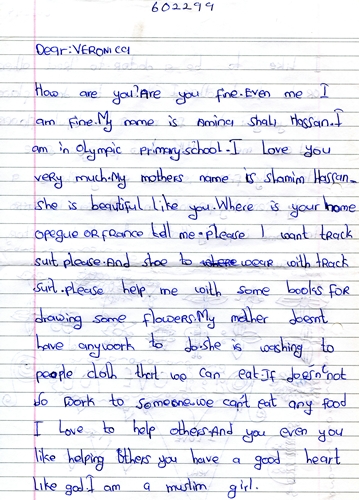 602299
Dear:VERONICCI
How are you?Are you fine.Even me I
am fine.My name is Amina Shali Hassan.I
am in Olympic primary.school.I Love you
very much.My mothers name is Shamim Hassan.
she is beautiful like you.Where is your home
OR FRANCE tell me.please I want track
suit please.And shoe to wear with track
suit.please help me with some books for
drawing some flowers.My mother doesnt
have anywork to do.she is washing to
people cloth that we can eat.If doesn't not
do work to someone we can't eat any food
I Love to help others.And you even you
like helping others you have a good heart
Like god.I am a muslim girl.